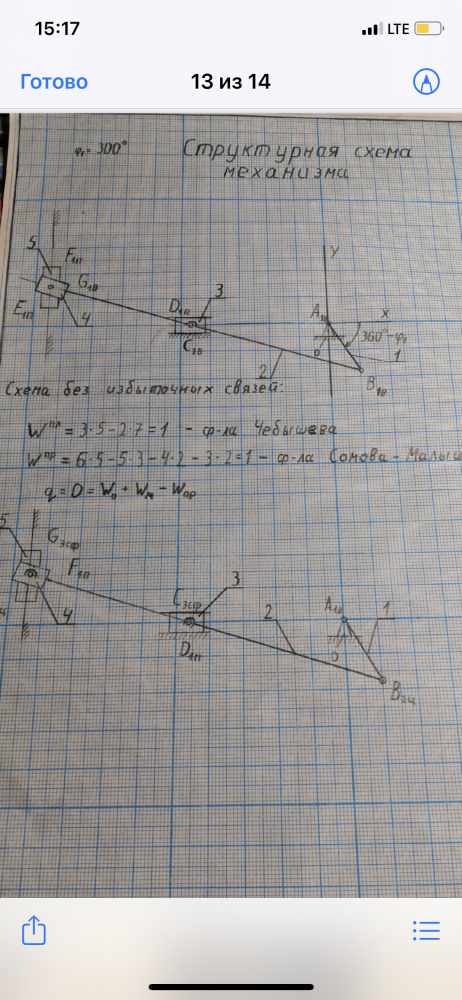 15:17
LTE
Готово
13 из 14
φ₁ = 300°
Структурная схема
механизма
5
F₁ₙ
G₁в
E₁ₙ
4
D₁ₙ
3
C₁в
y
A₁в
x
360°-φ₁
O
1
2
B₁в
Схема без избыточных связей:
Wᵖˡ = 3·5-2·7=1 - ф-ла Чебышева
Wᵖᵖ = 6·5-5·3-4·2-3·2=1 - ф-ла Сомова-Малыш
q = D = W₀ + Wₘ - Wₙₚ
5
G₃сф
F₁ₙ
4
C₃сф
3
D₁ₙ
2
A₁в
1
O
B₂ц